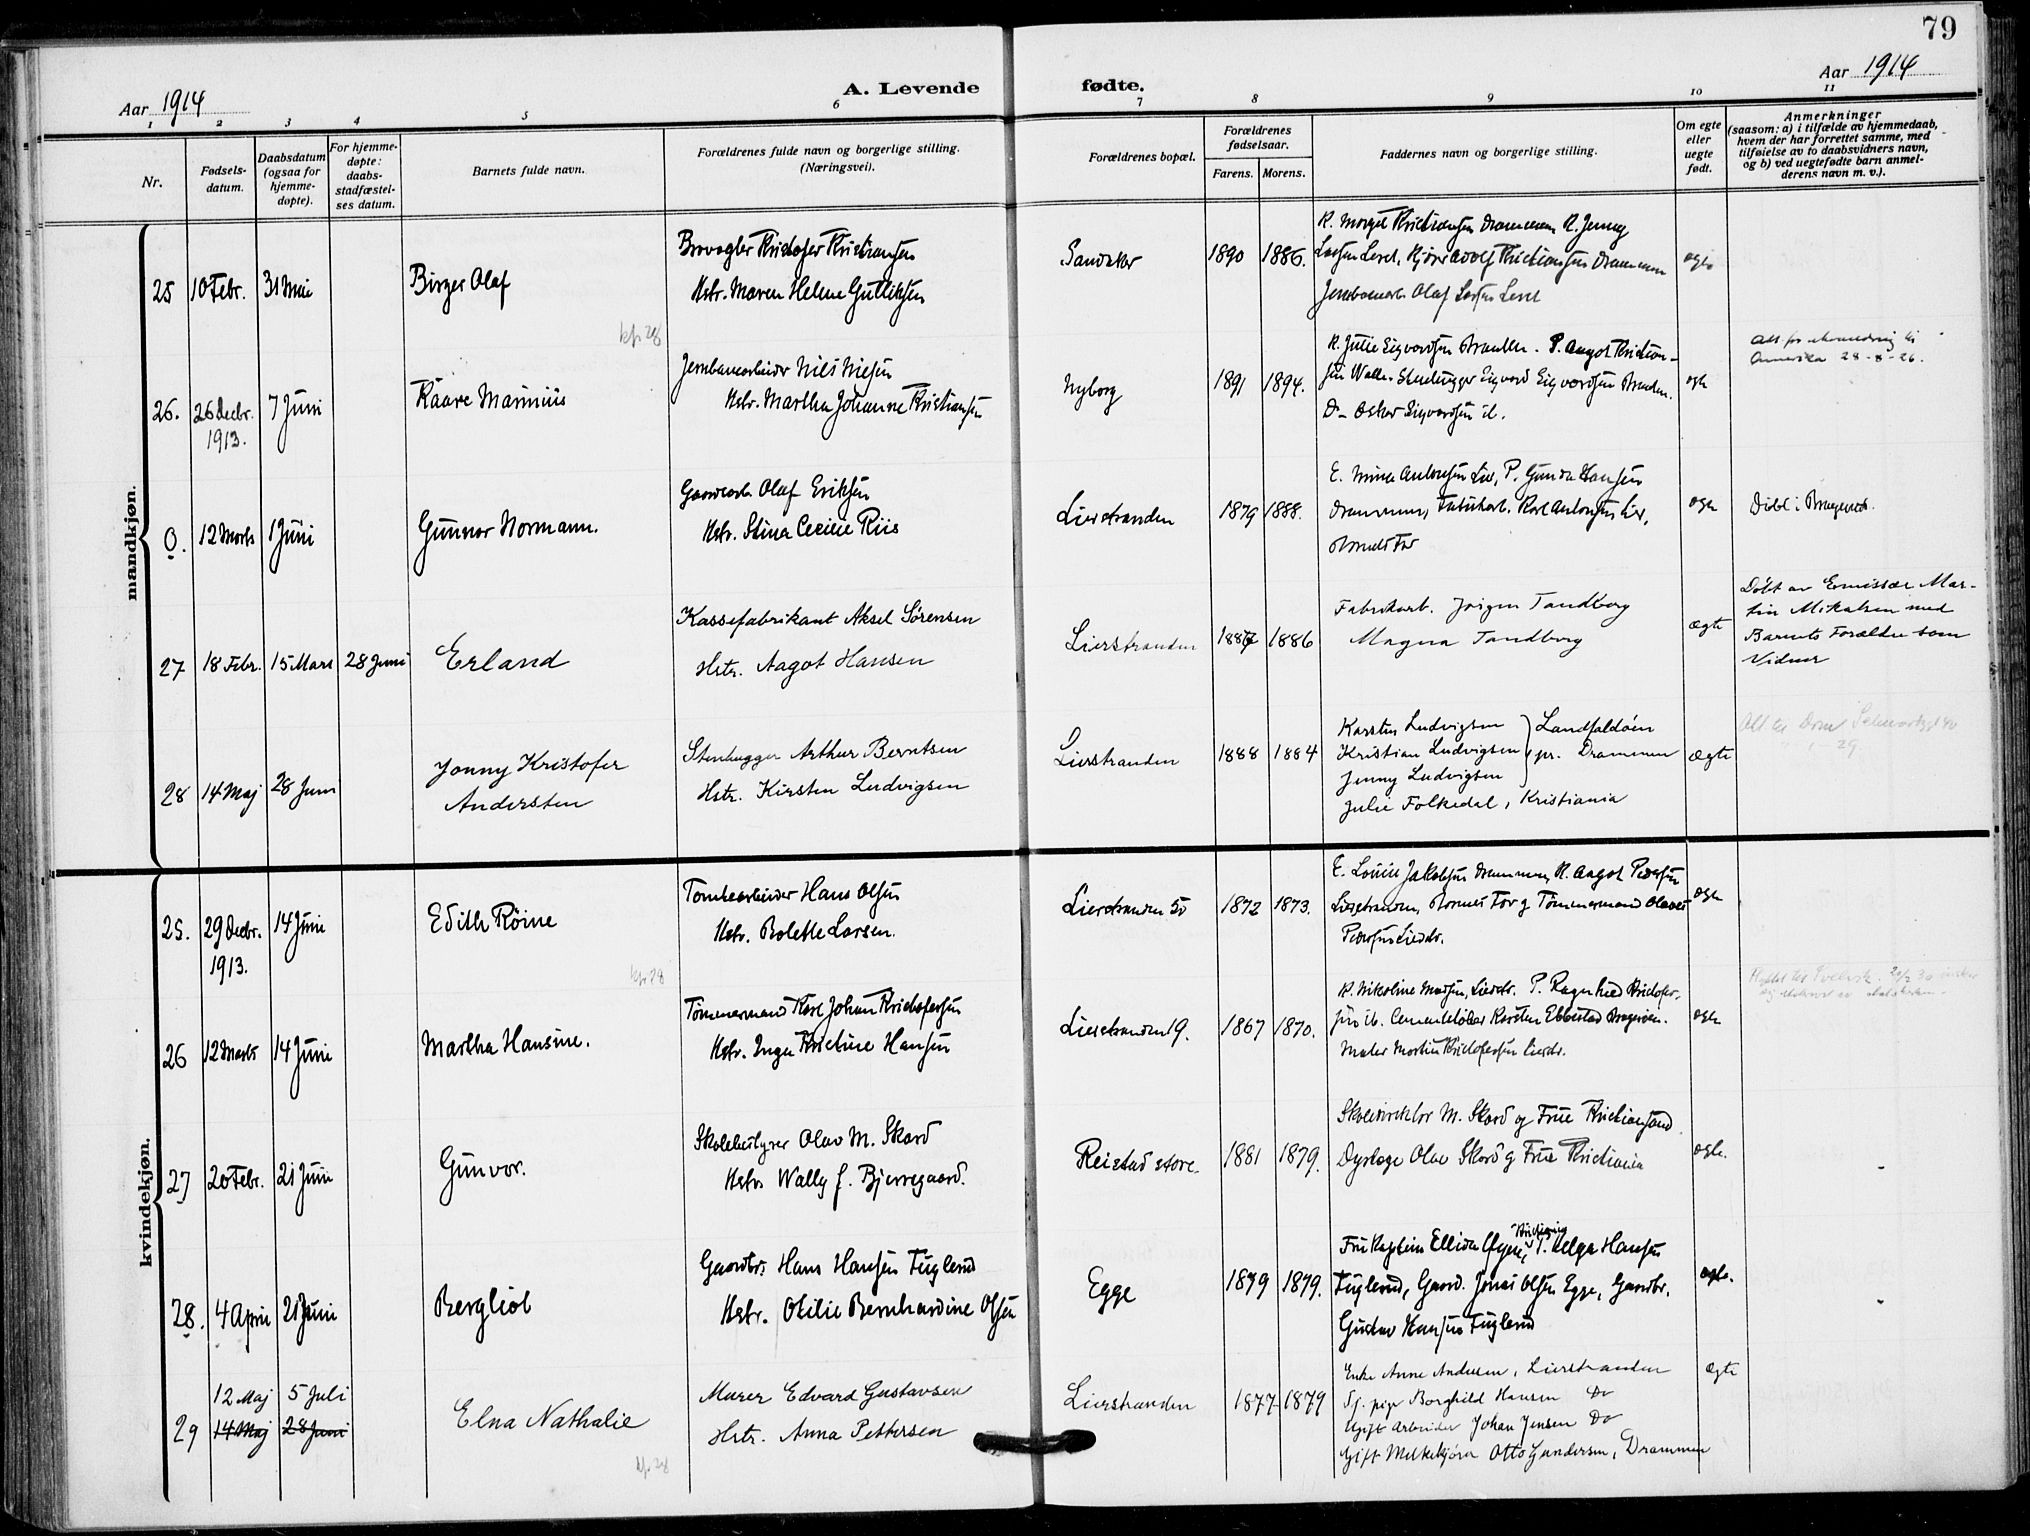 79
Aar 1914
A. Levende
fødte.
Aar 1914
1 2 3 4 5 6 7 8 9 10 11
Nr.
Fødsels-
datum.
Daabsdatum
(ogsaa for
hjemme-
døpte).
For hjemme-
døpte:
daabs-
stadfæstel-
ses datum.
Barnets fulde navn.
Forældrenes fulde navn og borgerlige stilling.
(Næringsvei).
Forældrenes bopæl.
Forældrenes
fødselsaar.
Farens. Morens.
Faddernes navn og borgerlige stilling.
Om egte
eller
uegte
født.
Anmerkninger
(saasom: a) i tilfælde av hjemmedaab,
hvem der har forrettet samme, med
tilføielse av to daabsvidners navn,
og b) ved uegtefødte barn anmel-
derens navn m. v.).
mandkjøn.
25 10 Febr. 31 Mai
Birger Olaf
Kristofer Kristiansen
Hstr. Maren Helene Gulliksen
Sandaker
1890 1886.
Kristiansen Drammen K. Jenny
Larsen Adolf Kristiansen Drammen
Olaf Larsen
kp. 28
26. 26 Decbr. 7 Juni
1913.
Kaare Marinius
Jernbanearbeider Nils Nielsen
Hstr. Martha Johanne Kristiansen
Nyborg
1891 1894.
egte
K. Julie Sigvardsen P. Aagot Kristian-
sen Stenhugger Sigvard Sigvardsen
Do - Oskar Sigvardsen ib.
Att. for utvandring til
Amerika 28-8-26.
0. 12 Marts 1 Juni
Gunnar Normann.
Gaardarb. Olaf Eriksen
Hstr. Stina Cecilie Riis
Lierstranden
1879 1888.
E. Mina Antonsen Lier, P. Gunda Hansen
Drammen, Fabrikarb. Karl Antonsen Lier,
Barnets Far
egte
Døbt i Bragernes.
27 18 Febr. 15 Mars 28 Juni
Erland
Kassefabrikant Aksel Sørensen
Hstr. Aagot Hansen
Lierstranden
1886
Fabrikarb. Jørgen Tandberg
Magna Tandberg
ægte
Døbt av Emissær Mar-
tin Mikalsen med
Barnets Forældre som
Vidner
28 14 Maj 28 Juni
Jonny Kristofer
Andersten
Stenhugger Arthur Berntsen
Hstr. Kirsten Ludvigsen
Lierstranden
1888 1884
Karsten Ludvigsen
Kristian Ludvigsen
Jenny Ludvigsen
Landfaldøen
pr. Drammen
Julie Folkedal, Kristiania
ægte
kvindekjøn.
25. 29 Decbr. 14 Juni
1913.
Edith Røine
Tomtearbeider Hans Olsen
Hstr. Bolette Larsen.
Lierstranden 50
1872 1873.
E. Louise Jakobsen Drammen, K. Aagot Pedersen
Lierstranden, Barnets Far og Tømmermand
Pedersen Lierstr.
egte
kp. 28
26 12 Marts 14 Juni
Martha Hansine.
Tømmermand Karl Johan Kristofersen
Hstr. Inga Kristine Hansen
Lierstranden 19.
1867 1870.
K. Nikoline Madsen, Lierstr. P. Ragnhild Kristofer-
sen ib. Cementstøber Karsten Ebbestad
Maler Martin Kristofersen Lierstr.
egte
27 20 Febr. 21 Juni
Gunvor.
Skolebestyrer Olav M. Skard
Hstr. Wally f. Bjerregaard.
Reistad store
1881 1879.
Skoledirektør M. Skard og Frue Kristiansand
Dyrlæge Olav Skard og Frue Kristiania
egte.
28. 4 April 21 Juni
Bergliot
Gaardbr. Hans Hansen Fuglerud
Hstr. Otilie Bernhardine Olsen
Egge
1879 1879.
Fru Kaptein Kristiania P. Helga Hansen
Fuglerud, Gaard. Jonas Olsen Egge, Gaardbr.
Gustav Hansen Fuglerud
egte.
29 12 Maj 5 Juli
14 Maj 28 Juni
Elna Nathalie
Murer Edvard Gustavsen
Hstr. Anna Pettersen
Lierstranden
1877 1879
Enke Anne Andersen, Lierstranden
pige Borghild Hansen Do
Ugift Arbeider Johan Jensen Do
Gift Melkekjører Otto Gundersen, Drammen
ægte
kp. 28